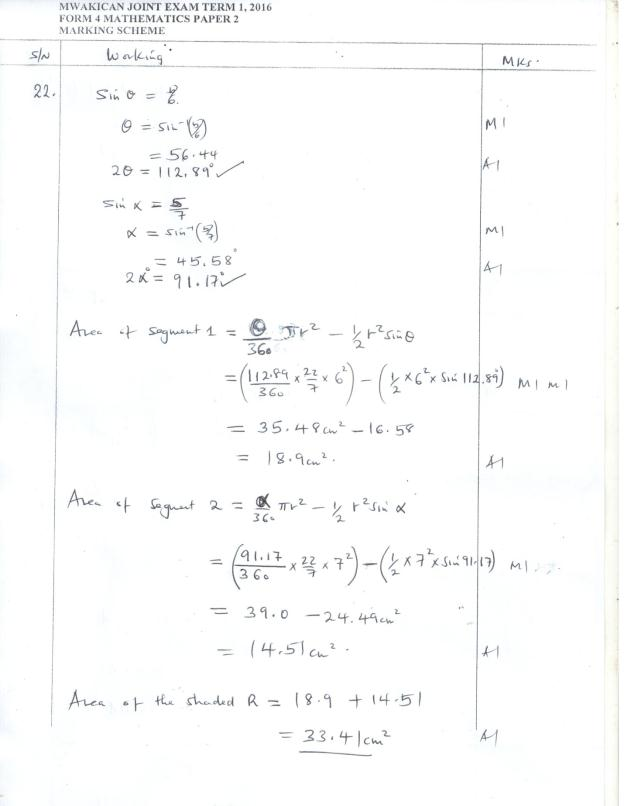 MWAKICAN JOINT EXAM TERM 1, 2016
FORM 4 MATHEMATICS PAPER 2
MARKING SCHEME
S/N Working MKs.
22. Sin θ = 5/6
θ = sin⁻¹(5/6) M1
= 56.44
2θ = 112.89° ✓ A1
Sin α = 5/7
α = sin⁻¹(5/7) M1
= 45.58°
2α° = 91.17° ✓ A1
Area of segment 1 = θ/360 πr² − ½ r² sin θ
= (112.89/360 × 22/7 × 6²) − (½ × 6² × sin 112.89°) M1 M1
= 35.48cm² − 16.58
= 18.9cm². A1
Area of segment 2 = α/360 πr² − ½ r² sin α
= (91.17/360 × 22/7 × 7²) − (½ × 7² × sin 91.17) M1
= 39.0 − 24.49cm²
= 14.51cm². A1
Area of the shaded R = 18.9 + 14.51
= 33.41cm² A1